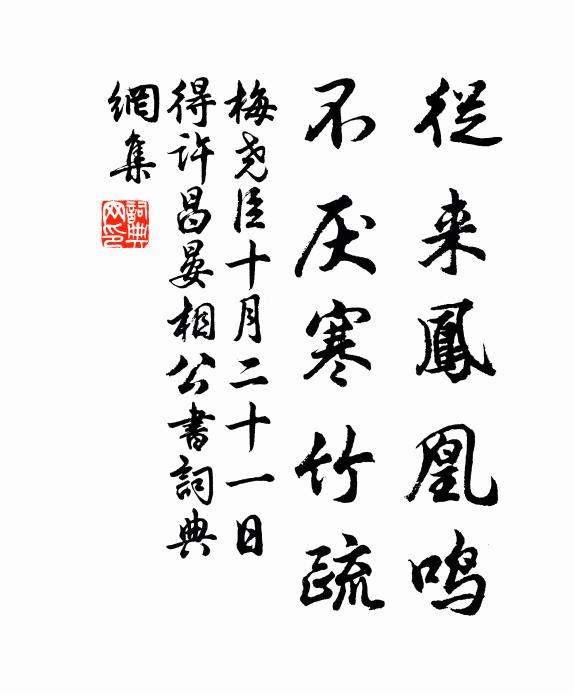 從来鳳凰鸣
不厌寒竹疏
梅尧臣十月二十一日
得许昌晏相公書詞典
網集
詞典网印